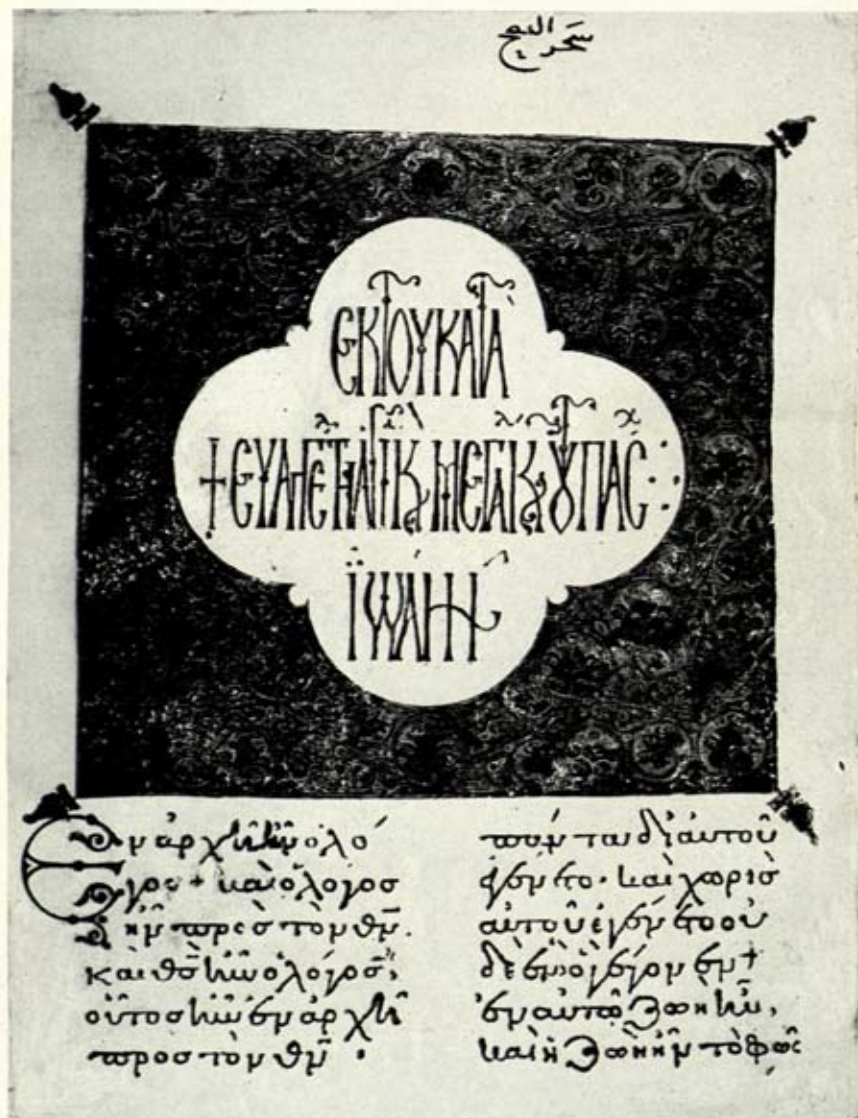 سحر
ΕΚ ΤΟΥ ΚΑΤΑ
ΙΩΑΝΝ
Ἐν ἀρχῆ ἦν ὁ λό
γος + καὶ ὁ λόγος
ἦν πρὸς τὸν θν̅.
καὶ θς̅ ἦν ὁ λόγος,
οὗτος ἦν ἐν ἀρχῆ
προς τὸν θν̅ .
παντα δι αὐτοῦ
ἐγένετο. καὶ χωρὶς
αὐτοῦ ἐγένετο οὐ
δὲ ἓν ὃ γέγονεν +
ἐν αὐτῶ ζωὴ ἦν,
καὶ ἡ ζωὴ ἦν τὸ φῶς